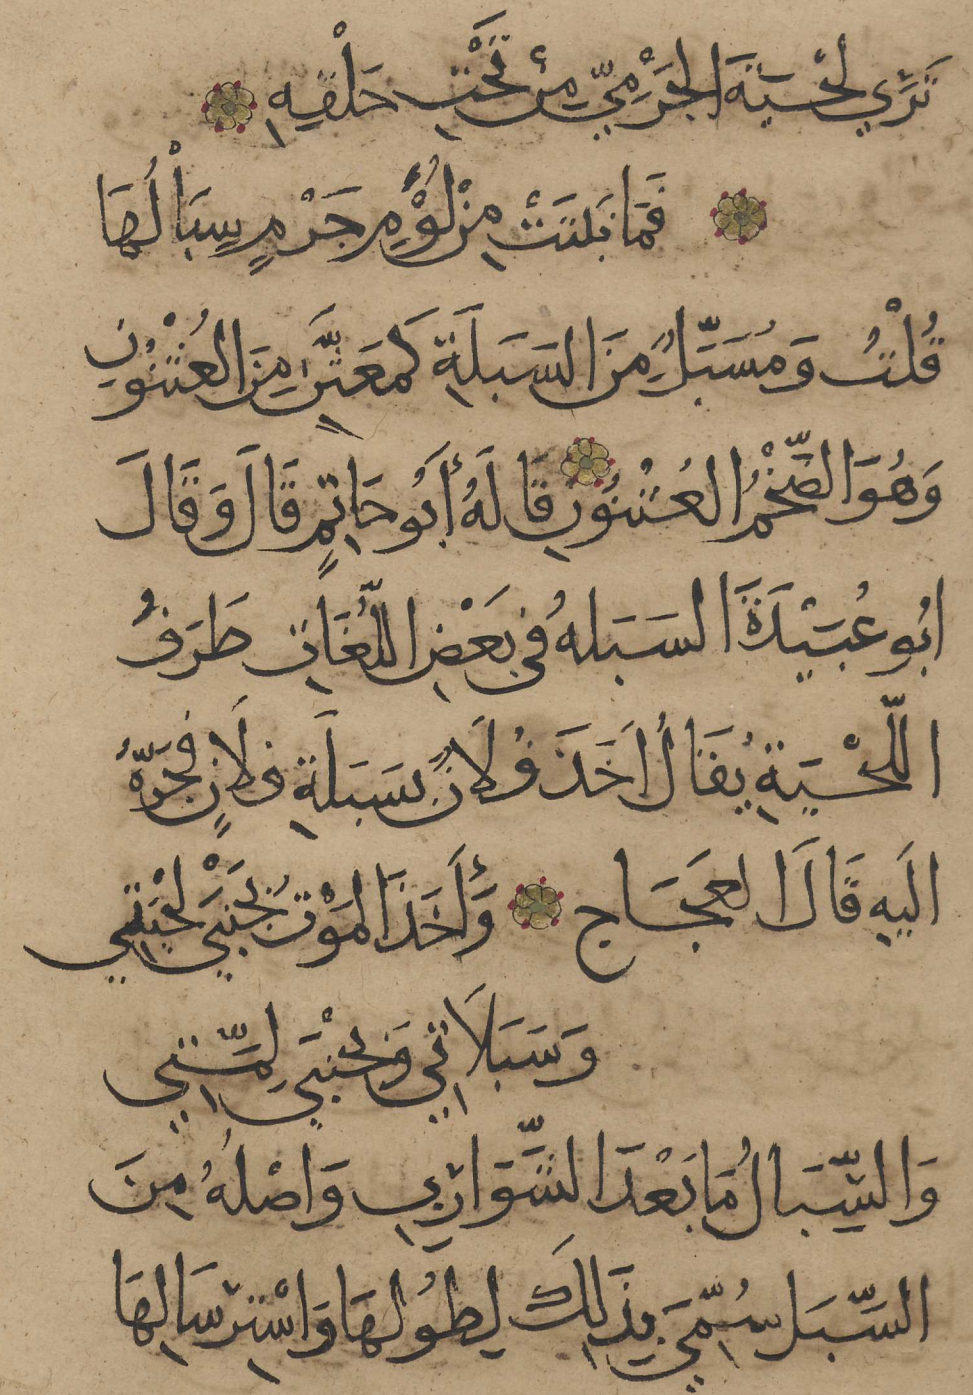 تَرَي لِحْيَةَ الجَرْمِيِّ مِنْ تَحْتِ حَلْقِهِ
فَمَا نَبَتَتْ مِنْ لُؤْمِ جَرْمٍ سِبَالُهَا
قُلْتُ وَمُسَبَّلٌ مِنَ السَبَلَةِ كَمُعَثَّنٍ مِنَ العُثْنُونِ
وَهُوَ الضَّخْمُ العُثْنُونِ قَالَهُ أَبُو حَاتِمٍ قَالَ وَقَالَ
ابُو عُبَيْدَةَ السَبَلهُ في بَعْضِ اللُّغَاتِ طَرَفُ
اللِّحْيَةِ يُقَالُ اَخَذَ فُلَانٌ بِسَبَلَةِ فُلَانٍ فَجَرَّهُ
اليَهِ قَالَ العَجَاج وَأَخَذَ المَوْتُ بِجَنْبَيْ لِحْيَتِي
وَسَبَلَاتِي وَبِجَنْبَيْ لِمَّتِي
وَالسِّبَالُ مَا بَعْدَ الشَّوَارِبِ وَاصْلُهُ مِنَ
السَّبَلِ سُمِّيَ بِذَلِكَ لِطُولِهَا وَاسْتِرْسَالِهَا